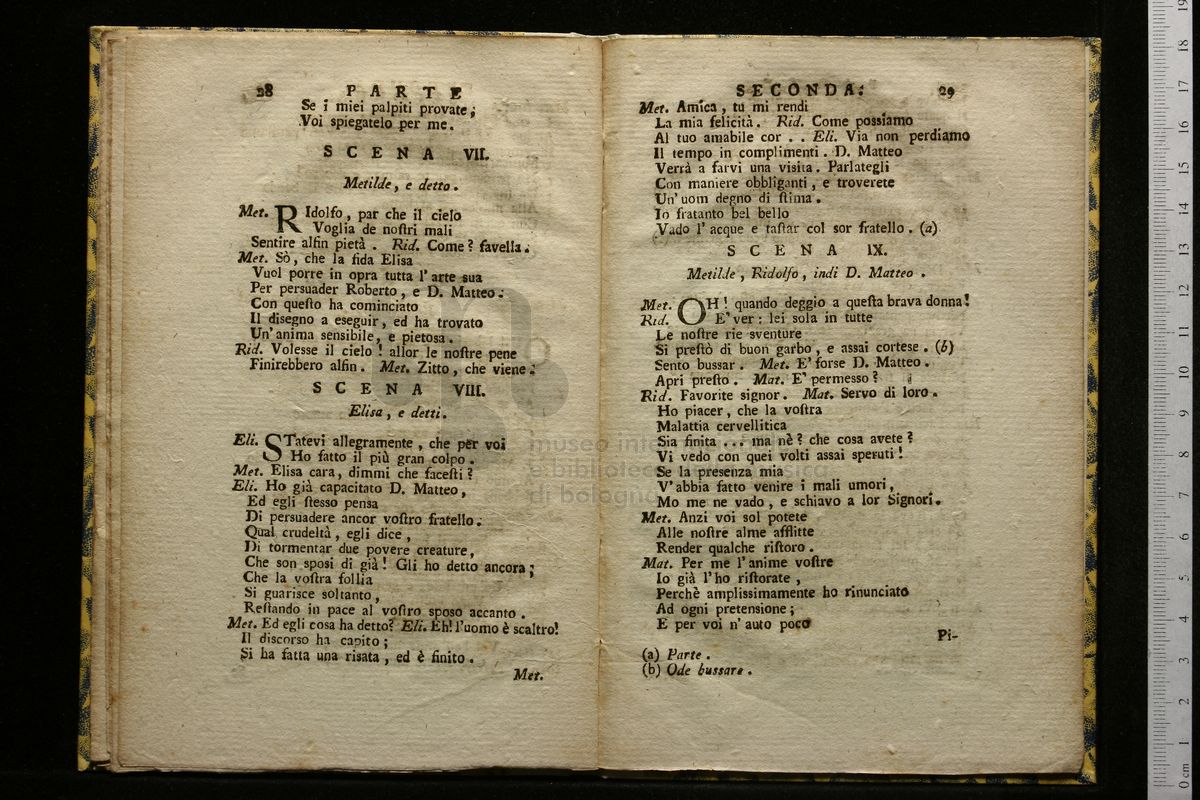 28 PARTE
Se i miei palpiti provate;
Voi spiegatelo per me.
SCENA VII.
Metilde, e detto.
Met. RIdolfo, par che il cielo
Voglia de noſtri mali
Sentire alfin pietà. Rid. Come? favella.
Met. Sò, che la fida Elisa
Vuol porre in opra tutta l'arte sua
Per persuader Roberto, e D. Matteo.
Con queſto ha cominciato
Il disegno a eseguir, ed ha trovato
Un'anima sensibile, e pietosa.
Rid. Volesse il cielo! allor le noſtre pene
Finirebbero alfin. Met. Zitto, che viene.
SCENA VIII.
Elisa, e detti.
Eli. STatevi allegramente, che per voi
Ho fatto il più gran colpo.
Met. Elisa cara, dimmi che faceſti?
Eli. Ho già capacitato D. Matteo,
Ed egli ſtesso pensa
Di persuadere ancor voſtro fratello.
Qual crudeltà, egli dice,
Di tormentar due povere creature,
Che son sposi di già! Gli ho detto ancora;
Che la voſtra follia
Si guarisce soltanto,
Reſtando in pace al voſtro sposo accanto.
Met. Ed egli cosa ha detto? Eli. Eh! l'uomo è scaltro!
Il discorso ha capito;
Si ha fatta una risata, ed è finito.
Met.
SECONDA. 29
Met. Amica, tu mi rendi
La mia felicità. Rid. Come possiamo
Al tuo amabile cor . . Eli. Via non perdiamo
Il tempo in complimenti. D. Matteo
Verrà a farvi una visita. Parlategli
Con maniere obbliganti, e troverete
Un'uom degno di ſtima.
Io fratanto bel bello
Vado l'acque e taſtar col sor fratello. (a)
SCENA IX.
Metilde, Ridolfo, indi D. Matteo.
Met. OH! quando deggio a queſta brava donna!
Rid. E' ver: lei sola in tutte
Le noſtre rie sventure
Si preſtò di buon garbo, e assai cortese. (b)
Sento bussar. Met. E' forse D. Matteo.
Apri preſto. Mat. E' permesso?
Rid. Favorite signor. Mat. Servo di loro.
Ho piacer, che la voſtra
Malattia cervellitica
Sia finita ... ma nè? che cosa avete?
Vi vedo con quei volti assai speruti!
Se la presenza mia
V'abbia fatto venire i mali umori,
Mo me ne vado, e schiavo a lor Signori.
Met. Anzi voi sol potete
Alle noſtre alme afflitte
Render qualche riſtoro.
Mat. Per me l'anime voſtre
Io già l'ho riſtorate,
Perchè amplissimamente ho rinunciato
Ad ogni pretensione;
E per voi n'auto poco
Pi-
(a) Parte.
(b) Ode bussare.